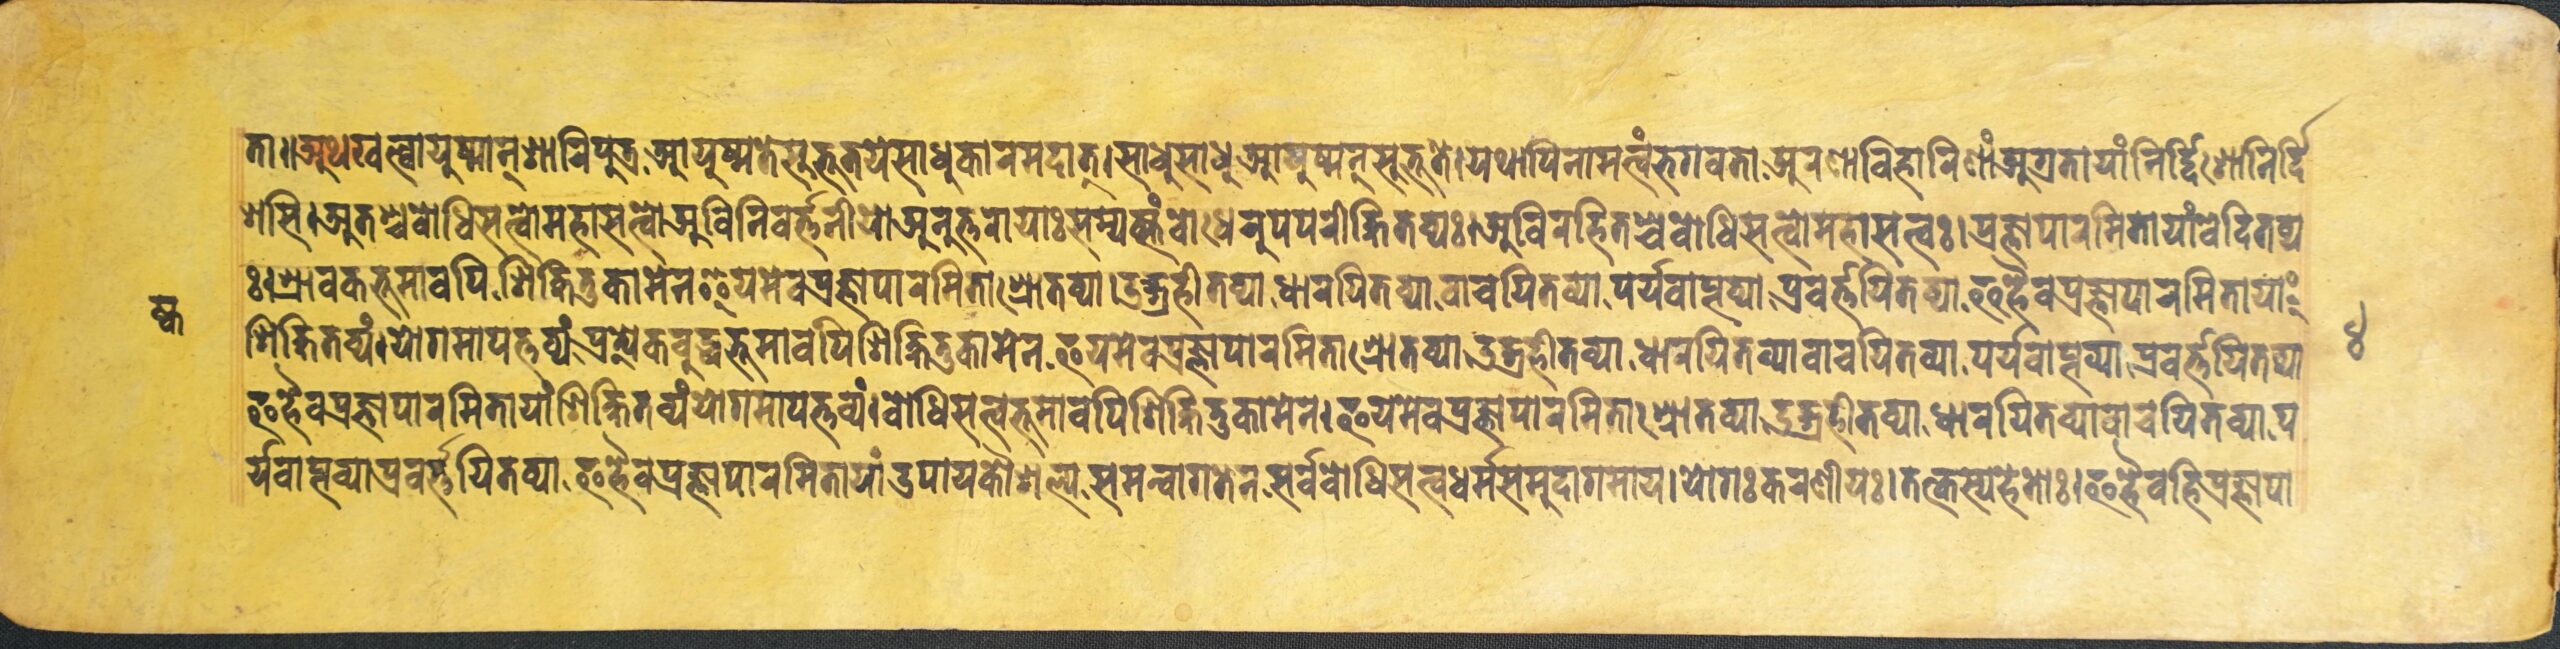 ता।।अथखल्वायुष्मान्शारिपुत्र आयुष्मतेसुभूतयेसाधुकारमदात्।साधुसाधुआयुष्मन्सुभूते।यथापिनामत्वंभगवता अरणाविहारिणांअग्रतायांनिर्द्दिशोनिर्दि
शसि।अतश्चबोधिसत्त्वोमहासत्त्वोअविनिवर्त्तनीयोअनुत्तरायाःसम्यक्संबोधेरुपपरीक्षितव्यः।अविरहितश्चबोधिसत्त्वोमहासत्त्वः।प्रज्ञापारमितायांवेदितव्य
ः।श्रावकभूमावपि शिक्षितुकामेनइयमेवप्रज्ञापारमिताश्रोतव्या।उद्ग्रहीतव्या धारयितव्या वाचयितव्या पर्यवाप्तव्या प्रवर्त्तयितव्या इहैवप्रज्ञापारमितायां
शिक्षितव्यं।योगमापत्तव्यं प्रत्येकबुद्धभूमावपिशिक्षितुकामेन इयमेवप्रज्ञापारमिताश्रोतव्या उद्ग्रहीतव्या धारयितव्यावाचयितव्या पर्यवाप्तव्या प्रवर्त्तयितव्या
इहैवप्रज्ञापारमितायांशिक्षितव्यंयोगमापत्तव्यं।बोधिसत्त्वभूमावपिशिक्षितुकामेन।इयमेवप्रज्ञापारमिताश्रोतव्या उद्ग्रहीतव्या धारयितव्यावाचयितव्या प
र्यवाप्तव्याप्रवर्त्तयितव्या इहैवप्रज्ञापारमितायांउपायकौशल्य समन्वागतेन सर्वबोधिसत्त्वधर्मसमुदागमाय।योगःकरणीयः।तत्कस्यहेतोः।इहैवहिप्रज्ञापा
४